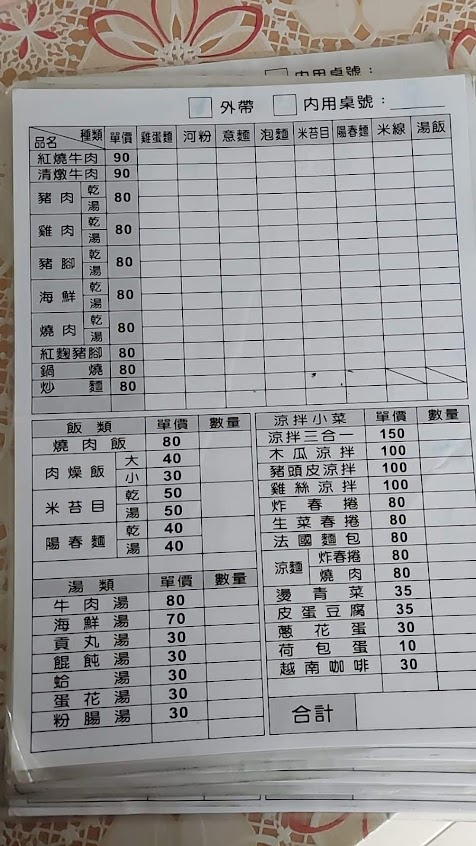 內用桌號：
外帶 內用桌號：
品名 種類 單價 雞蛋麵 河粉 意麵 泡麵 米苔目 陽春麵 米線 湯飯
紅燒牛肉 90
清燉牛肉 90
豬肉 乾 湯 80
雞肉 乾 湯 80
豬腳 乾 湯 80
海鮮 乾 湯 80
燒肉 乾 湯 80
紅麴豬腳 80
鍋燒 80
炒麵 80
飯類 單價 數量
燒肉飯 80
肉燥飯 大 40
小 30
米苔目 乾 50
湯 50
陽春麵 乾 40
湯 40
湯類 單價 數量
牛肉湯 80
海鮮湯 70
貢丸湯 30
餛飩湯 30
蛤湯 30
蛋花湯 30
粉腸湯 30
涼拌小菜 單價 數量
涼拌三合一 150
木瓜涼拌 100
豬頭皮涼拌 100
雞絲涼拌 100
炸春捲 80
生菜春捲 80
法國麵包 80
涼麵 炸春捲 80
燒肉 80
燙青菜 35
皮蛋豆腐 35
蔥花蛋 30
荷包蛋 10
越南咖啡 30
合計